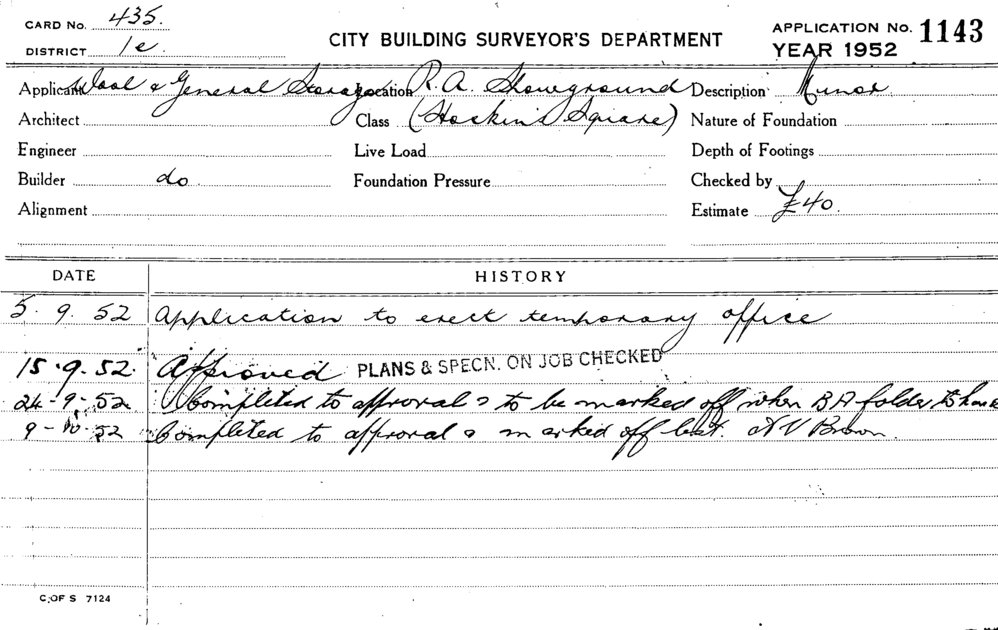 CARD No. 435.
DISTRICT 1e
CITY BUILDING SURVEYOR'S DEPARTMENT
APPLICATION No. 1143
YEAR 1952
Applicant Wool & General Storage Location R.A. Showground Description Minor
Architect Class (Hoskins Square) Nature of Foundation
Engineer Live Load Depth of Footings
Builder do Foundation Pressure Checked by
Alignment Estimate £40.
DATE HISTORY
5. 9. 52 Application to erect temporary office
15.9.52. Approved PLANS & SPECN. ON JOB CHECKED
24-9-52 Completed to approval & to be marked off when BA folder to hand
9-10-52 Completed to approval & marked off A V Brown.
C. OF S 7124